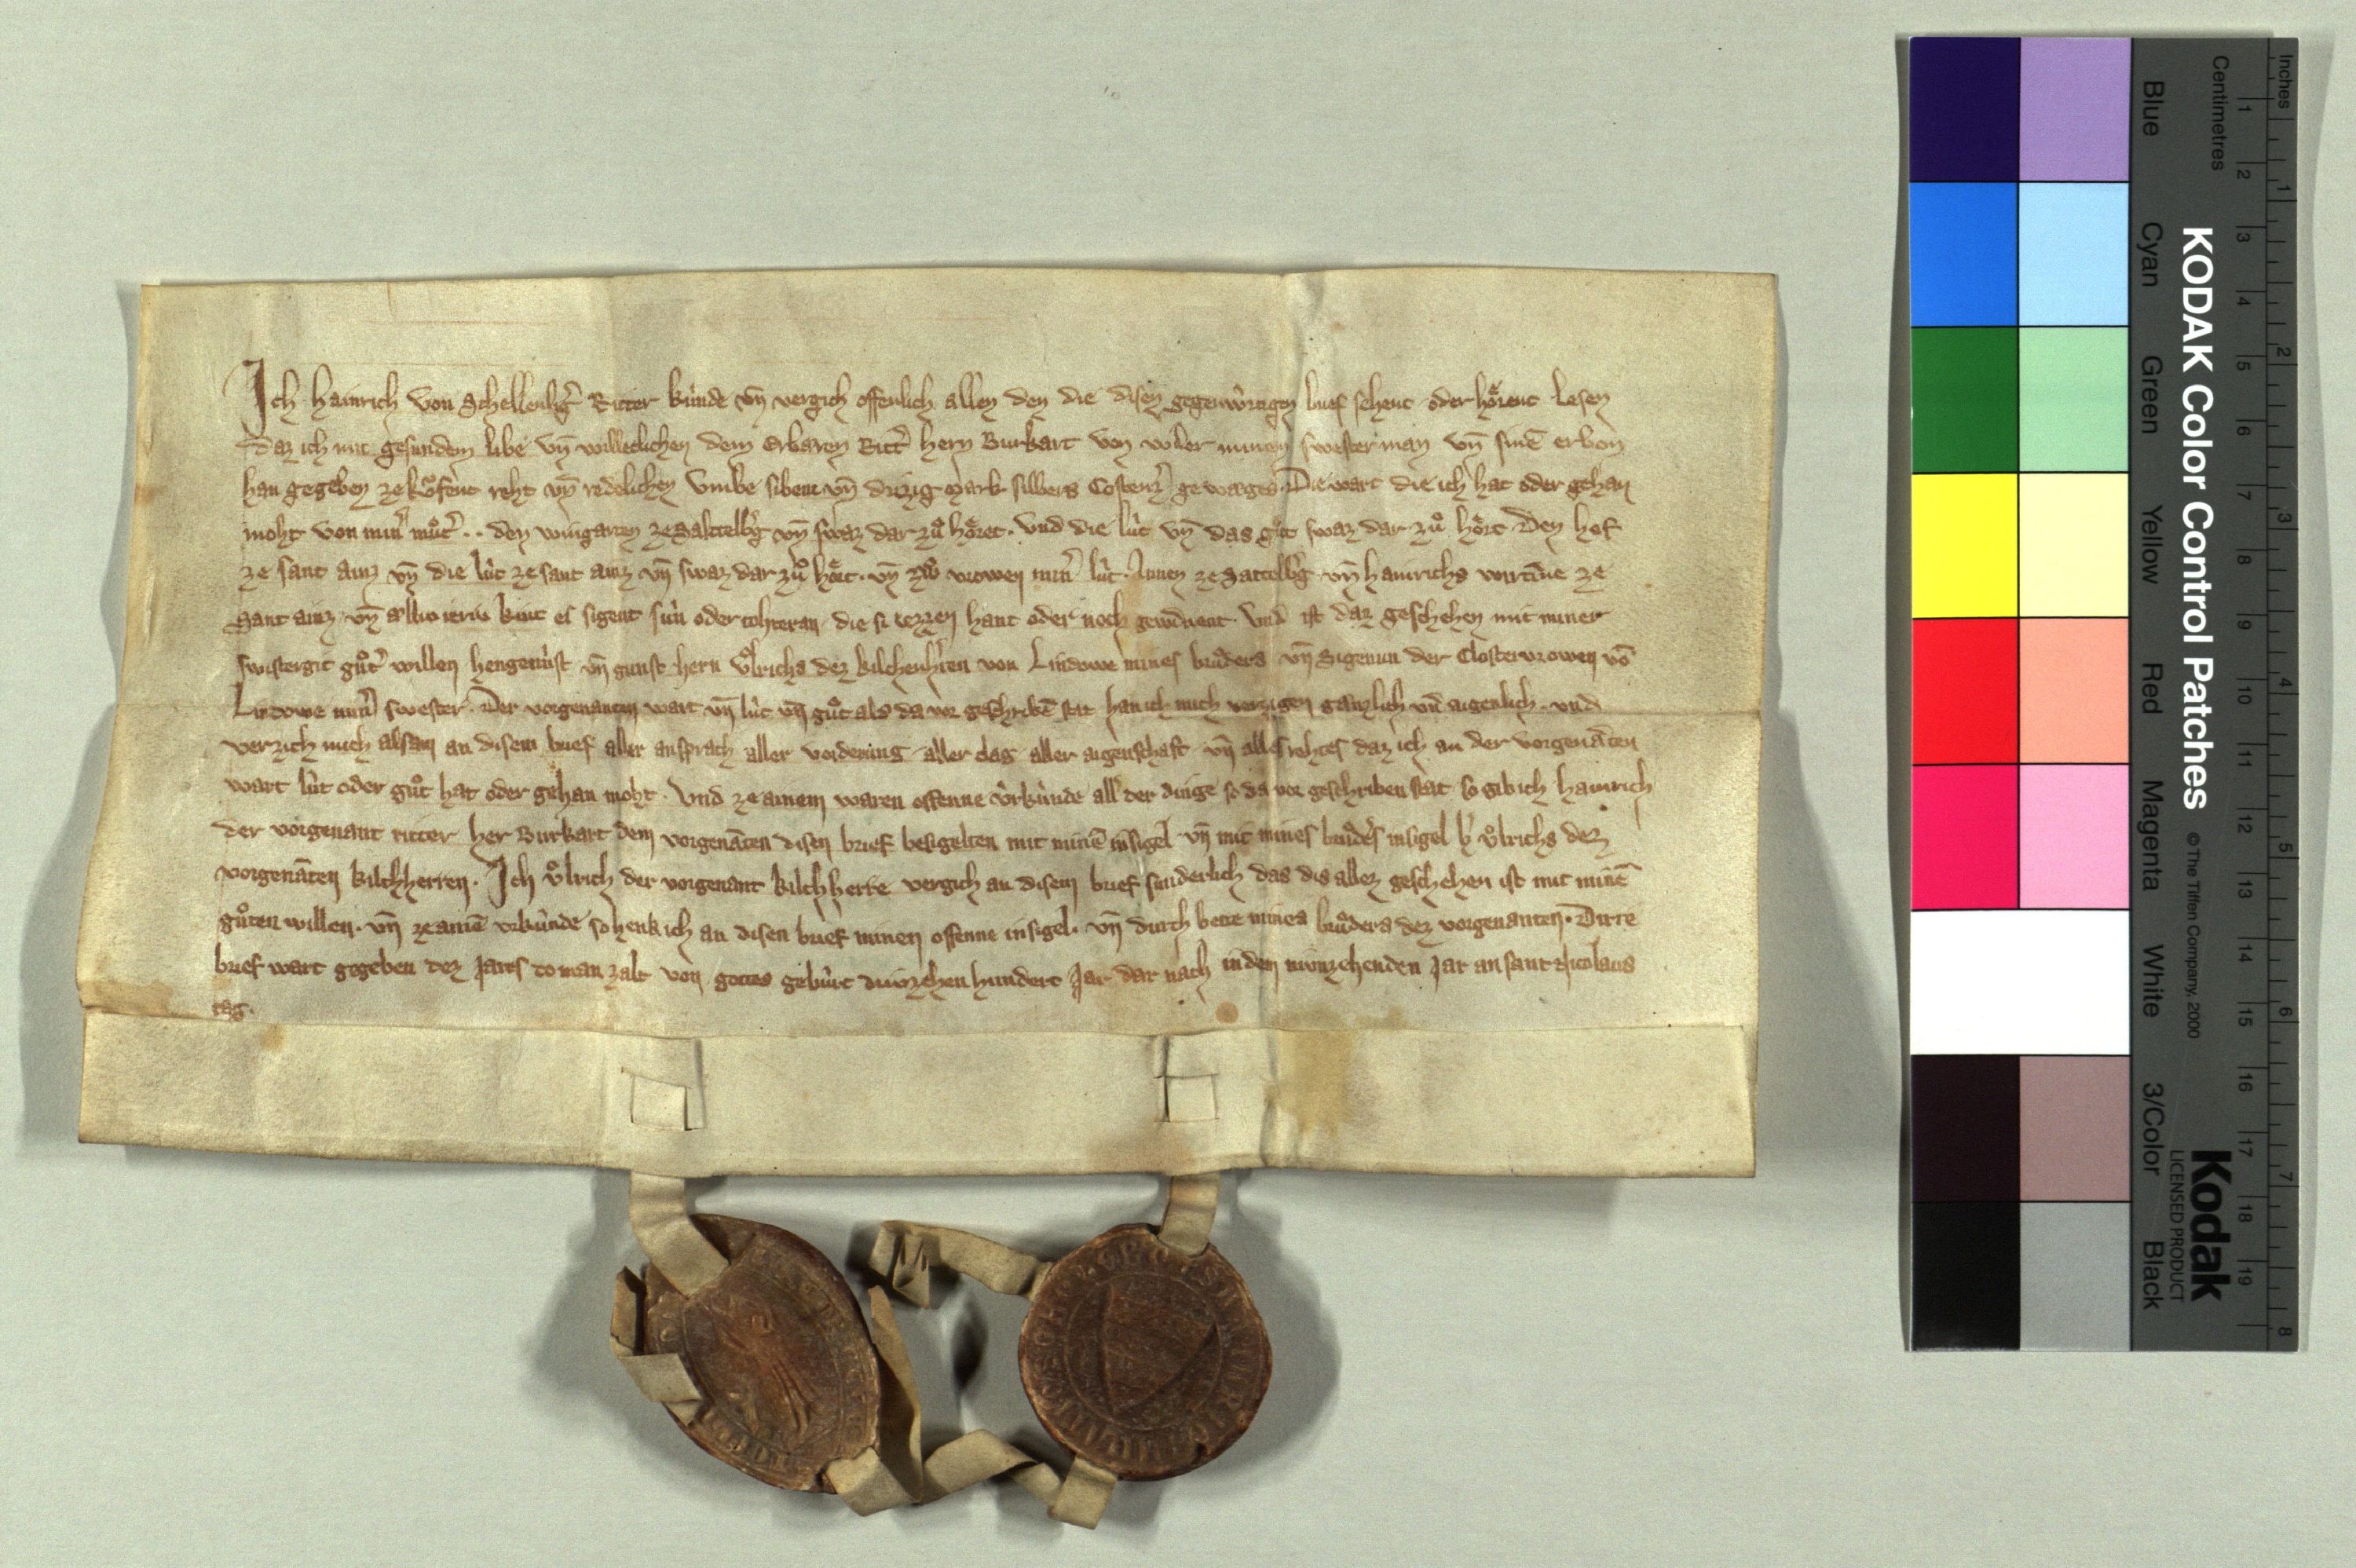 Ich Hainrich von Schellenbg̕ Ritter kùnde vn̄ vergich offenlich allen den die disen gegenwu̍rtigen brief sehent oder hoͤrent lesen
daz ich mit gesundem libe vn̄ willeclichen dem Erbaren Ritt̕ hern Burkart von wiler minem swesterman vn̄ sinē erben
han gegeben ze koͮfent reht vn̄ redelichen vmbe siben vn̄ drizig Mark silbers Costenz̕ geweges. Die wart die ich hat oder gehan
moht von min̕ muͦt̕ . . den wingarten ze Sakttelbg̕ vn̄ swaz dar zuͦ hoͤret. vnd die lùt vn̄ das guͦt swaz dar zuͦ hoͤrt Den hof
ze sant ainz vn̄ die lùt ze sant ainz vn̄ swaz dar zuͦ hoͤrt. vn̄ vrowen min̕ lùt. ze Sattelbg̕ vn̄ Hainrichs ze
Sant ainz vn̄ ierù kint es sigent sùn oder tohteran die si iezzen hant oder noch gewinnent. vnd ist daz geschehen mit miner
swistergit guͦt̕ willen hengenùst vn̄ gunst hern vͦlrichs dez kilchenh̕ren von Lindowe mines bruͦders vn̄ Sigenun der Closterurowen vō
Lindowe min̕ swester. Der vorgenanten wart vn̄ lùt vn̄ guͦt als da vor geschribē stat han ich mich verzigen gänzlich vn̄ aigenlich. vnd
verzich mich alsam an disem brief aller ansprach aller vorderung aller clag aller aigenschaft vn̄ alles rehtes daz ich an der vorgenāten
wart lùt oder guͦt hat oder gehan moht. Vnd ze ainem waren offenne vrkùnde all̕ der dinge so da vor geschriben stat so gib ich Hainrich
der vorgenant ritter her Burkart dem vorgenāten disen brief besigelten mit minē insigel vn̄ mit mines bruͦders insigel h̕ vͦlrichs dez
vorgenāten kilchherren. Ich vͦlrich der vorgenant kilchherre vergich an disem brief sunderlich das dis allez geschehen ist mit minē
guͦten willen. vn̄ ze ainē vrkùnde so henk ich an disen brief minen offenne insigel. vn̄ durch bette mines bruͦders dez vorgenanten. Dirre
brief wart gegeben dez Jares do man zalt von gottes gebùrt drùzehenhundert Jar dar nach in dem nùnzehenden Jar an sant Nicolaus
tag.
KODAK Color Control Patches
© The Tiffen Company, 2000
Kodak
LICENSED PRODUCT
Blue Cyan Green Yellow Red Magenta White 3/Color Black
Centimetres 1 2 3 4 5 6 7 8 9 10 11 12 13 14 15 16 17 18 19
Inches 1 2 3 4 5 6 7 8